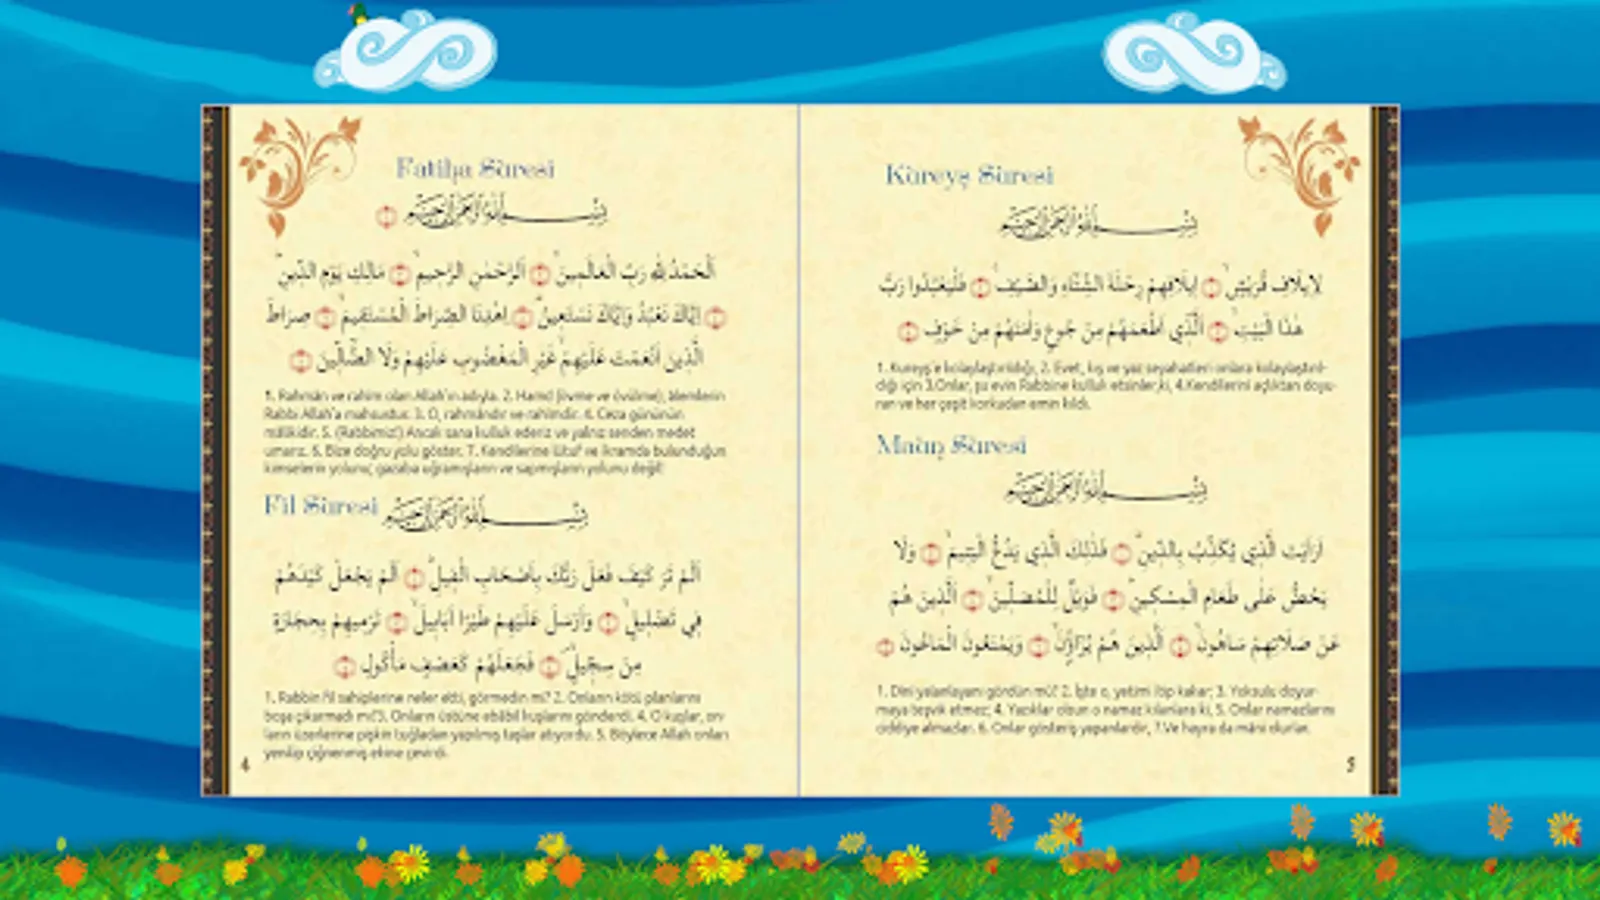 Fatiha Sûresi
بِسْمِ اللّٰهِ الرَّحْمٰنِ الرَّحِيمِ
اَلْحَمْدُ لِلّٰهِ رَبِّ الْعَالَمِينَ اَلرَّحْمٰنِ الرَّحِيمِ مَالِكِ يَوْمِ الدِّينِ
اِيَّاكَ نَعْبُدُ وَاِيَّاكَ نَسْتَعِينُ اِهْدِنَا الصِّرَاطَ الْمُسْتَقِيمَ صِرَاطَ
الَّذِينَ اَنْعَمْتَ عَلَيْهِمْ غَيْرِ الْمَغْضُوبِ عَلَيْهِمْ وَلَا الضَّالِّينَ
1. Rahmân ve rahîm olan Allah'ın adıyla. 2. Hamd (övme ve övülme), âlemlerin
Rabbi Allah'a mahsustur. 3. O, rahmândır ve rahîmdir. 4. Ceza gününün
mâlikidir. 5. (Rabbimiz!) Ancak sana kulluk ederiz ve yalnız senden medet
umarız. 6. Bize doğru yolu göster. 7. Kendilerine lütuf ve ikramda bulunduğun
kimselerin yolunu; gazaba uğramışların ve sapmışların yolunu değil!
Fil Sûresi
بِسْمِ اللّٰهِ الرَّحْمٰنِ الرَّحِيمِ
اَلَمْ تَرَ كَيْفَ فَعَلَ رَبُّكَ بِاَصْحَابِ الْفِيلِ اَلَمْ يَجْعَلْ كَيْدَهُمْ
فِي تَضْلِيلٍ وَاَرْسَلَ عَلَيْهِمْ طَيْرًا اَبَابِيلَ تَرْمِيهِمْ بِحِجَارَةٍ
مِنْ سِجِّيلٍ فَجَعَلَهُمْ كَعَصْفٍ مَأْكُولٍ
1. Rabbin fil sahiplerine neler etti, görmedin mi? 2. Onların kötü planlarını
boşa çıkarmadı mı? 3. Onların üstüne ebâbil kuşlarını gönderdi. 4. O kuşlar, on-
ların üzerlerine pişkin tuğladan yapılmış taşlar atıyordu. 5. Böylece Allah onları
yenilip çiğnenmiş ekine çevirdi.
4
Kûreyş Sûresi
بِسْمِ اللّٰهِ الرَّحْمٰنِ الرَّحِيمِ
لِاِيلَافِ قُرَيْشٍ اِيلَافِهِمْ رِحْلَةَ الشِّتَاءِ وَالصَّيْفِ فَلْيَعْبُدُوا رَبَّ
هٰذَا الْبَيْتِ اَلَّذِي اَطْعَمَهُمْ مِنْ جُوعٍ وَاٰمَنَهُمْ مِنْ خَوْفٍ
1. Kureyş'e kolaylaştırıldığı, 2. Evet, kış ve yaz seyahatleri onlara kolaylaştırıl-
dığı için 3.Onlar, şu evin Rabbine kulluk etsinler,ki, 4.Kendilerini açlıktan doyu-
ran ve her çeşit korkudan emin kıldı.
Maûn Sûresi
بِسْمِ اللّٰهِ الرَّحْمٰنِ الرَّحِيمِ
اَرَاَيْتَ الَّذِي يُكَذِّبُ بِالدِّينِ فَذٰلِكَ الَّذِي يَدُعُّ الْيَتِيمَ وَلَا
يَحُضُّ عَلٰى طَعَامِ الْمِسْكِينِ فَوَيْلٌ لِلْمُصَلِّينَ اَلَّذِينَ هُمْ
عَنْ صَلَاتِهِمْ سَاهُونَ اَلَّذِينَ هُمْ يُرَاؤُنَ وَيَمْنَعُونَ الْمَاعُونَ
1. Dini yalanlayanı gördün mü? 2. İşte o, yetimi itip kakar; 3. Yoksulu doyur-
maya teşvik etmez; 4. Yazıklar olsun o namaz kılanlara ki, 5. Onlar namazlarını
ciddiye almazlar. 6. Onlar gösteriş yapanlardır, 7.Ve hayra da mâni olurlar.
5